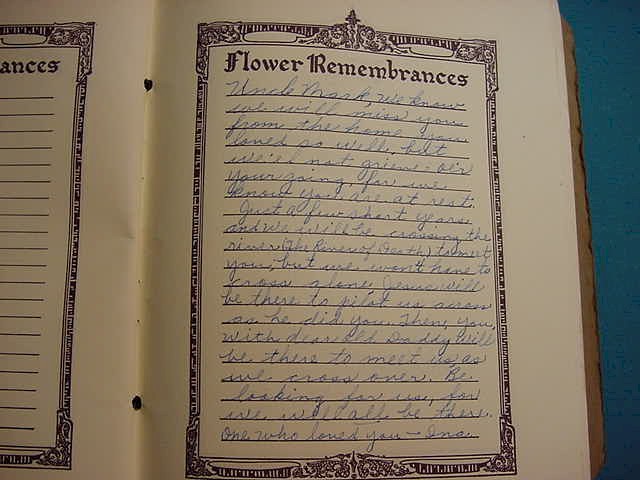 ances
Flower Remembrances
Uncle Mark, we know
we will miss you
from the home you
loved so well, but
we'll not grieve o'er
your going, for we
know you are at rest.
Just a few short years
and we will be crossing the
river (The River of Death) to meet
you, but we won't have to
cross alone. Jesus will
be there to pilot us across
as he did you. Then, you,
with dear old Daddy Will
be there to meet us as
we cross over. Be
looking for us, for
we will all be there.
One who loved you - Ina.